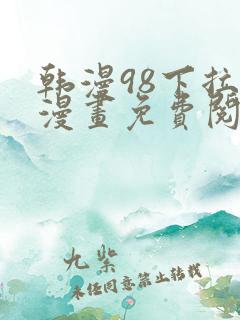 韩漫98下拉
漫畫免費閱
九紫
未经同意禁止转载